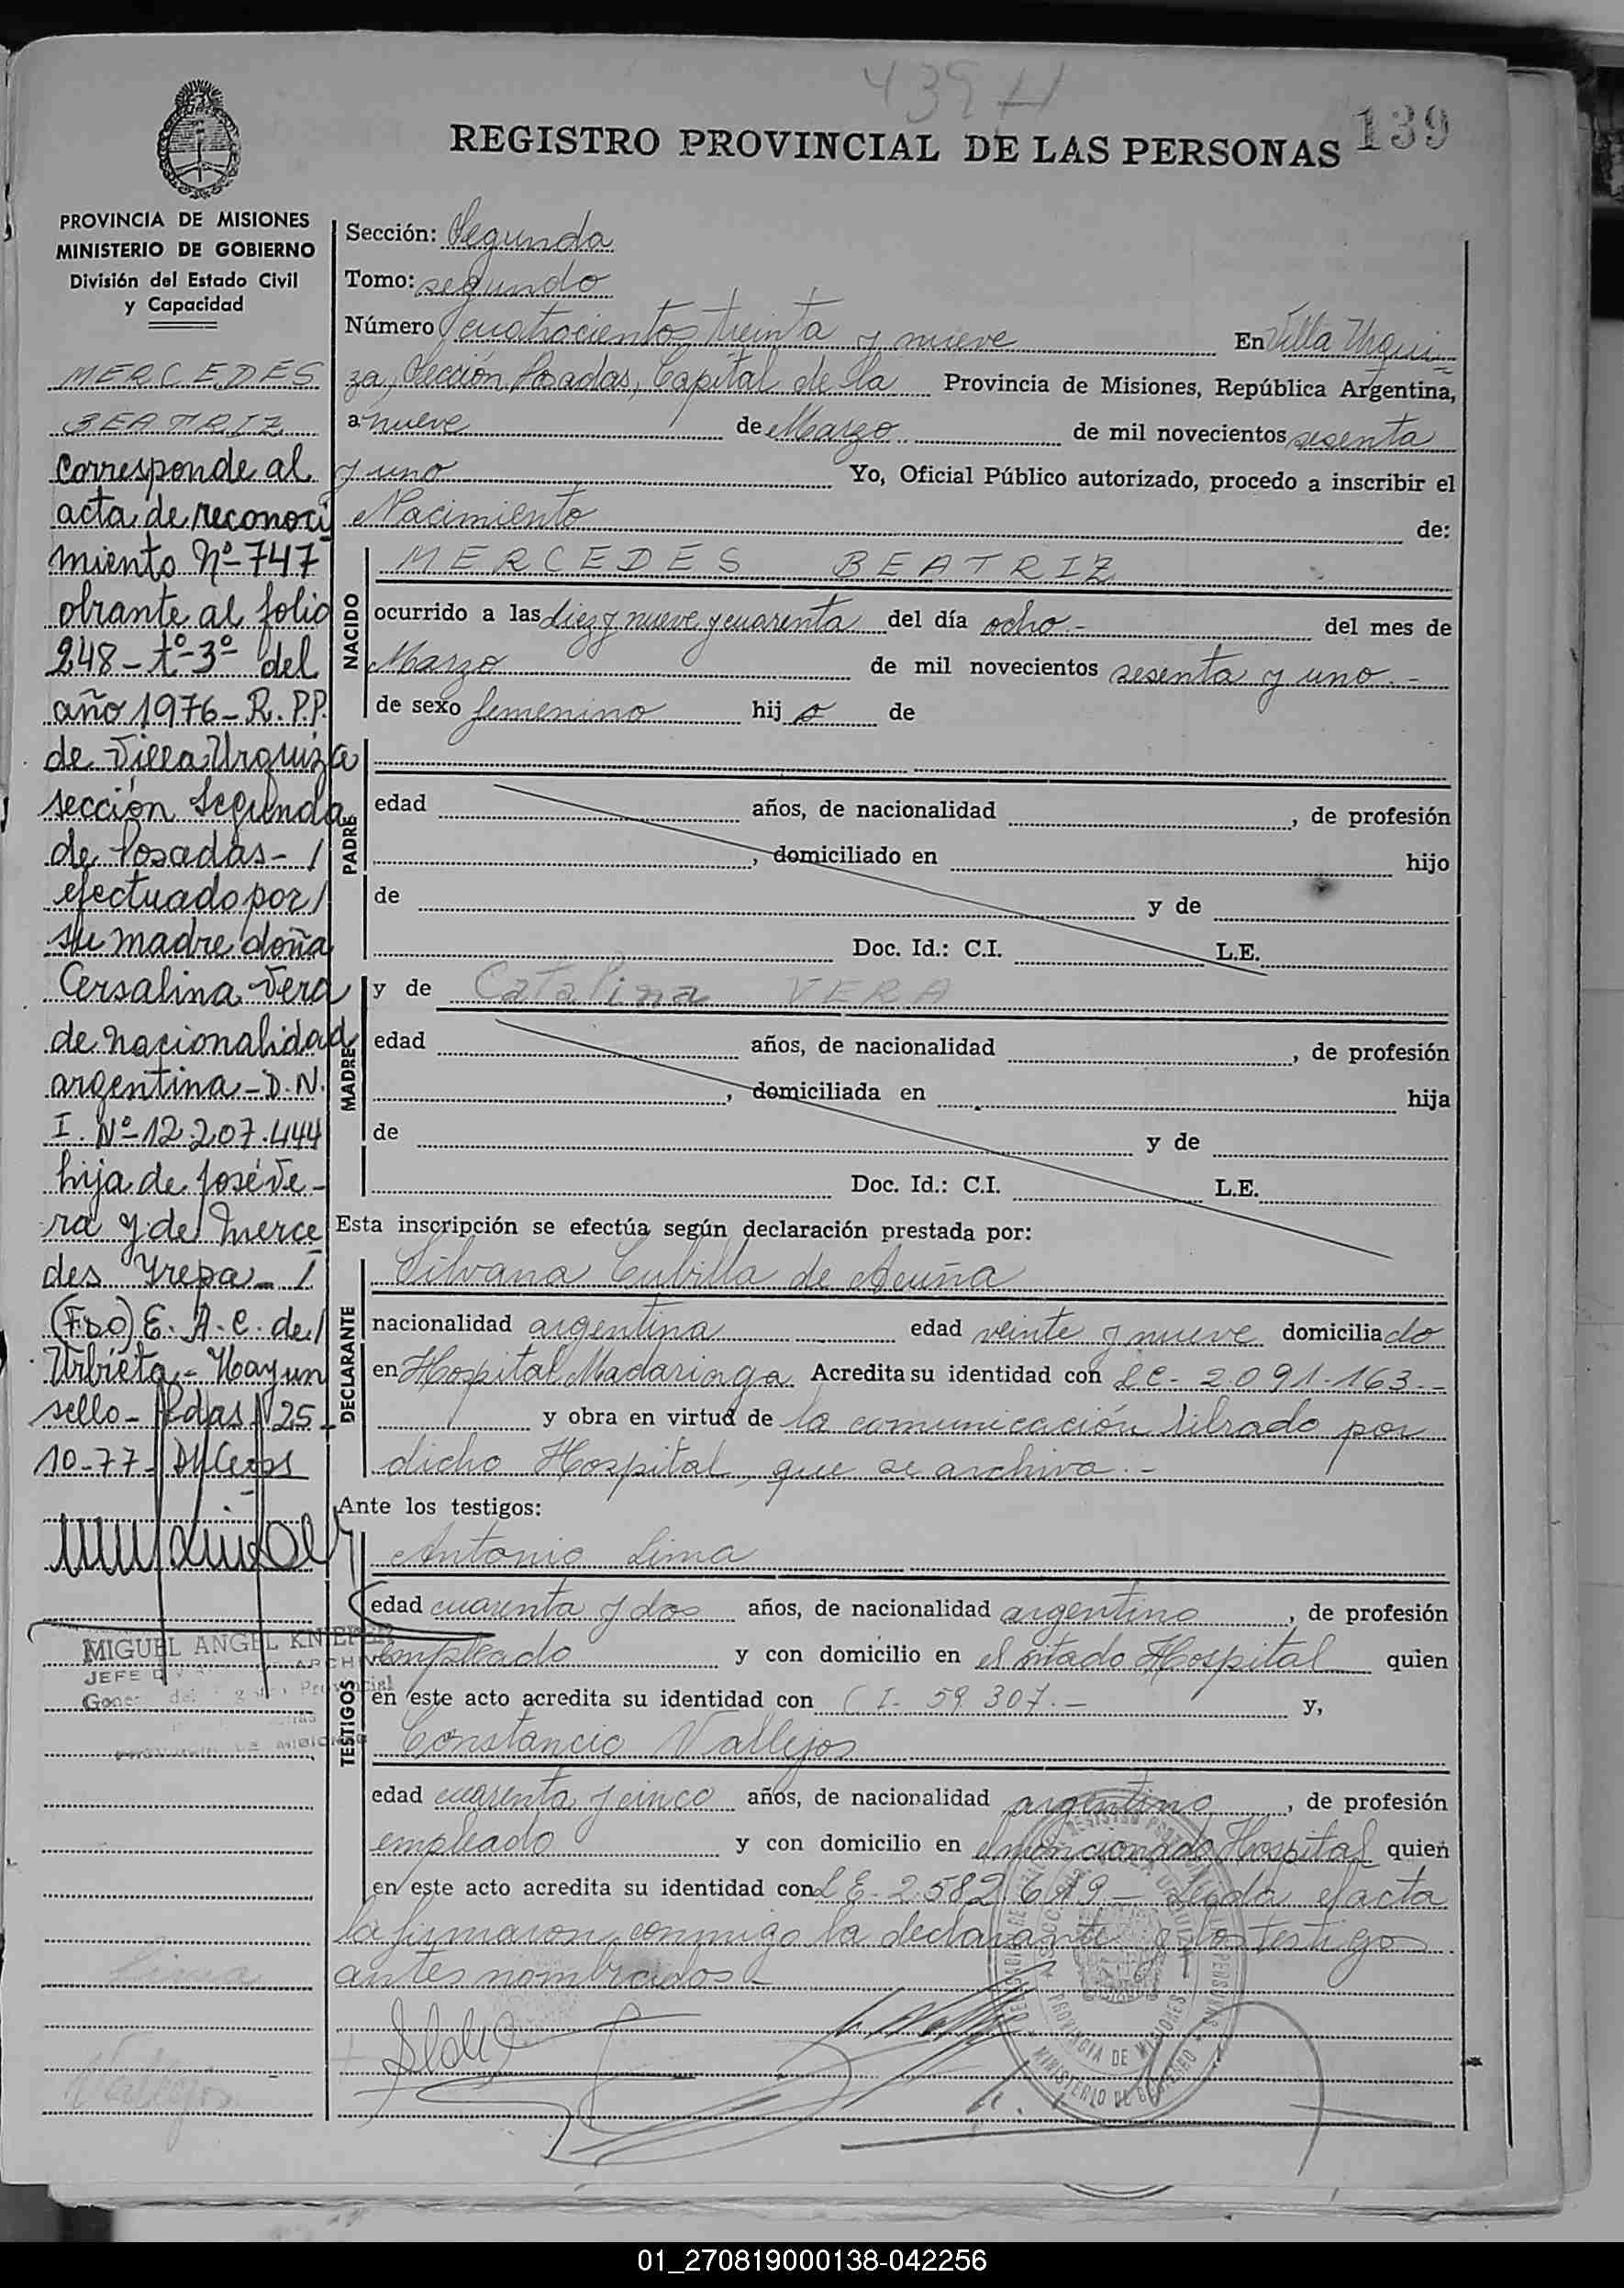 439 H
139
REGISTRO PROVINCIAL DE LAS PERSONAS
PROVINCIA DE MISIONES
MINISTERIO DE GOBIERNO
División del Estado Civil
y Capacidad
MERCEDES
BEATRIZ
corresponde al
acta de reconoci
miento Nº 747
obrante al folio
248 - tº 3º del
año 1976 - R.P.P.
de Villa Urquiza
sección Segunda
de Posadas - /
efectuado por /
su madre doña
Cersalina Vera
de nacionalidad
argentina - D.N.
I. Nº 12.207.444
hija de José Ve-
ra y de Merce
des Yrepa - /
(Fdo) E. A. C. de /
Urbieta - Hay un
sello - Pdas 25 -
10-77 -
MIGUEL ANGEL KNIEPER
JEFE
Lima
Vallejos
Sección: Segunda
Tomo: segundo
Número cuatrocientos treinta y nueve En Villa Urqui
za, Sección Posadas, Capital de la Provincia de Misiones, República Argentina,
a nueve de Marzo de mil novecientos sesenta
y uno Yo, Oficial Público autorizado, procedo a inscribir el
Nacimiento de:
NACIDO
MERCEDES BEATRIZ
ocurrido a las diez y nueve y cuarenta del día ocho.- del mes de
Marzo de mil novecientos sesenta y uno.-
de sexo femenino hij a de
PADRE
edad años, de nacionalidad , de profesión
, domiciliado en hijo
de y de
Doc. Id.: C.I. L.E.
MADRE
y de Catalina VERA
edad años, de nacionalidad , de profesión
, domiciliada en hija
de y de
Doc. Id.: C.I. L.E.
Esta inscripción se efectúa según declaración prestada por:
DECLARANTE
Silvana Cubilla de Acuña
nacionalidad argentina edad veinte y nueve domiciliado
en Hospital Madariaga Acredita su identidad con LC- 2.091.163.-
y obra en virtud de la comunicación librado por
dicho Hospital, que se archiva.-
Ante los testigos:
TESTIGOS
Antonio Lima
edad cuarenta y dos años, de nacionalidad argentino , de profesión
empleado y con domicilio en el citado Hospital quien
en este acto acredita su identidad con C I- 59.307.- y,
Constancio Vallejos
edad cuarenta y cinco años, de nacionalidad argentino , de profesión
empleado y con domicilio en el mencionado Hospital quien
en este acto acredita su identidad con L E- 2.582.619 - Leída el acta
la firmaron conmigo la declarante y los testigos
antes nombrados -
PROVINCIA DE MISIONES
MINISTERIO DE GOBIERNO
01_270819000138-042256